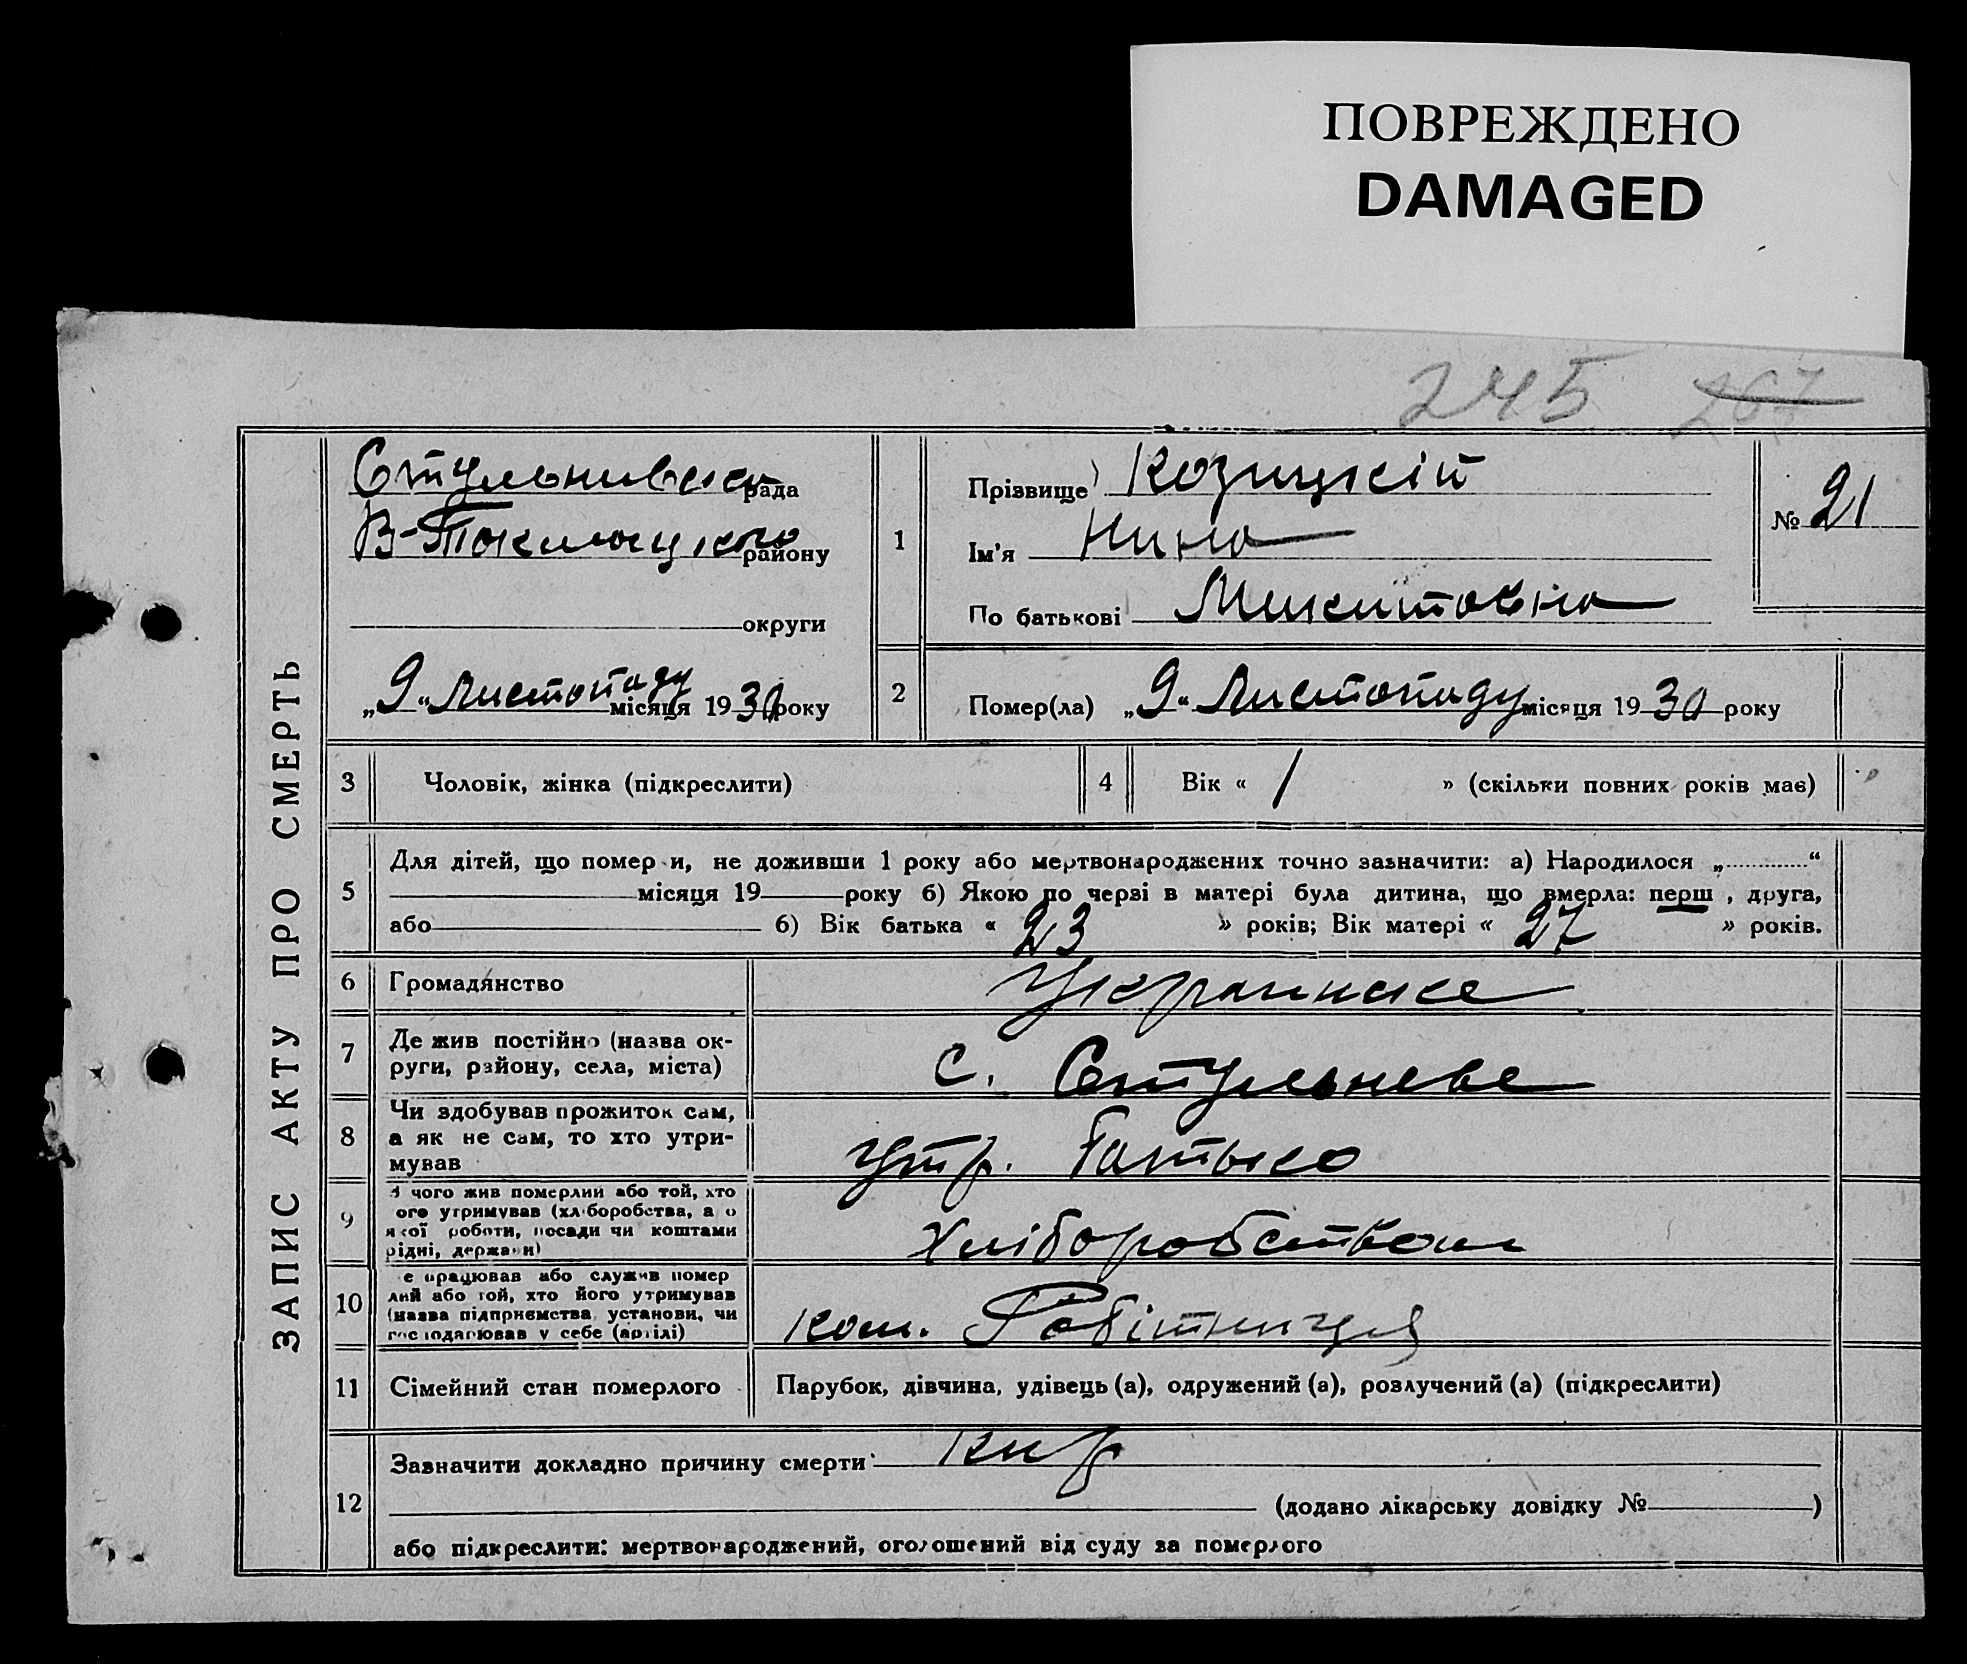 ПОВРЕЖДЕНО
DAMAGED
245 267
ЗАПИС АКТУ ПРО СМЕРТЬ
Стульнивська рада
В-Токмацького району
округи
„9“ Листопаду місяця 1930 року
1
Прізвище Козицкій
Ім'я Нина
По батькові Микитовна
№ 21
2
Помер(ла) „9“ Листопаду місяця 1930 року
3 Чоловік, жінка (підкреслити)
4 Вік « 1 » (скільки повних років має)
5
Для дітей, що помер и, не доживши 1 року або мертвонароджених точно зазначити: а) Народилося „ “
місяця 19 року б) Якою по черзі в матері була дитина, що вмерла: перш , друга,
або б) Вік батька « 23 » років; Вік матері « 27 » років.
6 Громадянство Украинське
7 Де жив постійно (назва ок-
руги, району, села, міста)
с. Стульневе
8 Чи здобував прожиток сам,
а як не сам, то хто утри-
мував
утр. батько
9 З чого жив померлий або той, хто
ого утримував (хліборобства, а о
якої роботи, посади чи коштами
рідні, держави)
Хліборобством
10 е працював або служив помер
лий або той, хто його утримував
(назва підприємства, установи, чи
господарював у себе (артілі)
ком. Робітниця
11 Сімейний стан померлого Парубок, дівчина, удівець (а), одружений (а), розлучений (а) (підкреслити)
12
Зазначити докладно причину смерти Кир
(додано лікарську довідку № )
або підкреслити: мертвонароджений, оголошений від суду за померлого